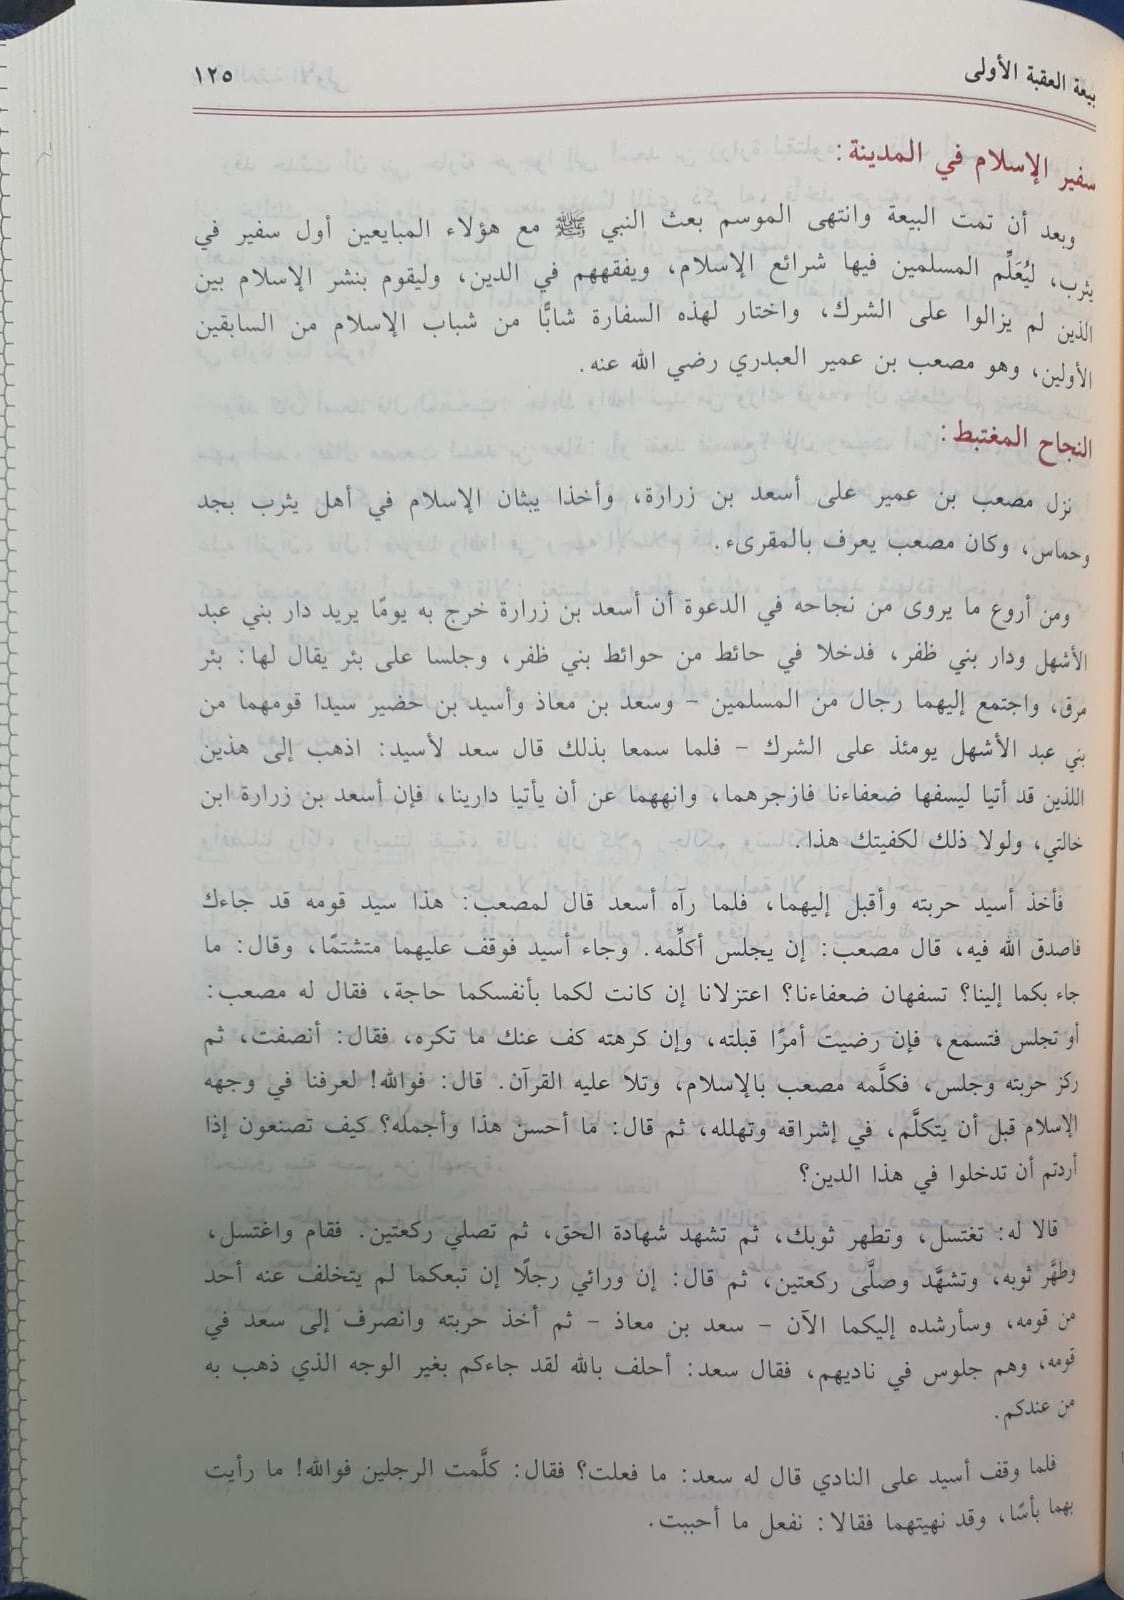 بيعة العقبة الأولى
١٢٥
سفير الإسلام في المدينة:
وبعد أن تمت البيعة وانتهى الموسم بعث النبي ﷺ مع هؤلاء المبايعين أول سفير في
يثرب، ليُعَلِّم المسلمين فيها شرائع الإسلام، ويفقههم في الدين، وليقوم بنشر الإسلام بين
الذين لم يزالوا على الشرك، واختار لهذه السفارة شابًّا من شباب الإسلام من السابقين
الأولين، وهو مصعب بن عمير العبدري رضي الله عنه.
النجاح المغتبط:
نزل مصعب بن عمير على أسعد بن زرارة، وأخذا يبثان الإسلام في أهل يثرب بجد
وحماس، وكان مصعب يعرف بالمقرىء.
ومن أروع ما يروى من نجاحه في الدعوة أن أسعد بن زرارة خرج به يومًا يريد دار بني عبد
الأشهل ودار بني ظفر، فدخلا في حائط من حوائط بني ظفر، وجلسا على بئر يقال لها: بئر
مرق، واجتمع إليهما رجال من المسلمين - وسعد بن معاذ وأسيد بن حضير سيدا قومهما من
بني عبد الأشهل يومئذ على الشرك - فلما سمعا بذلك قال سعد لأسيد: اذهب إلى هذين
اللذين قد أتيا ليسفها ضعفاءنا فازجرهما، وانههما عن أن يأتيا دارينا، فإن أسعد بن زرارة ابن
خالتي، ولولا ذلك لكفيتك هذا.
فأخذ أسيد حربته وأقبل إليهما، فلما رآه أسعد قال لمصعب: هذا سيد قومه قد جاءك
فاصدق الله فيه، قال مصعب: إن يجلس أكلِّمه. وجاء أسيد فوقف عليهما متشتمًا، وقال: ما
جاء بكما إلينا؟ تسفهان ضعفاءنا؟ اعتزلانا إن كانت لكما بأنفسكما حاجة، فقال له مصعب:
أو تجلس فتسمع، فإن رضيت أمرًا قبلته، وإن كرهته كف عنك ما تكره، فقال: أنصفت، ثم
ركز حربته وجلس، فكلَّمه مصعب بالإسلام، وتلا عليه القرآن. قال: فوالله! لعرفنا في وجهه
الإسلام قبل أن يتكلَّم، في إشراقه وتهلله، ثم قال: ما أحسن هذا وأجمله؟ كيف تصنعون إذا
أردتم أن تدخلوا في هذا الدين؟
قالا له: تغتسل، وتطهر ثوبك، ثم تشهد شهادة الحق، ثم تصلي ركعتين. فقام واغتسل،
وطهَّر ثوبه، وتشهَّد وصلَّى ركعتين، ثم قال: إن ورائي رجلًا إن تبعكما لم يتخلف عنه أحد
من قومه، وسأرشده إليكما الآن - سعد بن معاذ - ثم أخذ حربته وانصرف إلى سعد في
قومه، وهم جلوس في ناديهم، فقال سعد: أحلف بالله لقد جاءكم بغير الوجه الذي ذهب به
من عندكم.
فلما وقف أسيد على النادي قال له سعد: ما فعلت؟ فقال: كلَّمت الرجلين فوالله! ما رأيت
بهما بأسًا، وقد نهيتهما فقالا: نفعل ما أحببت.